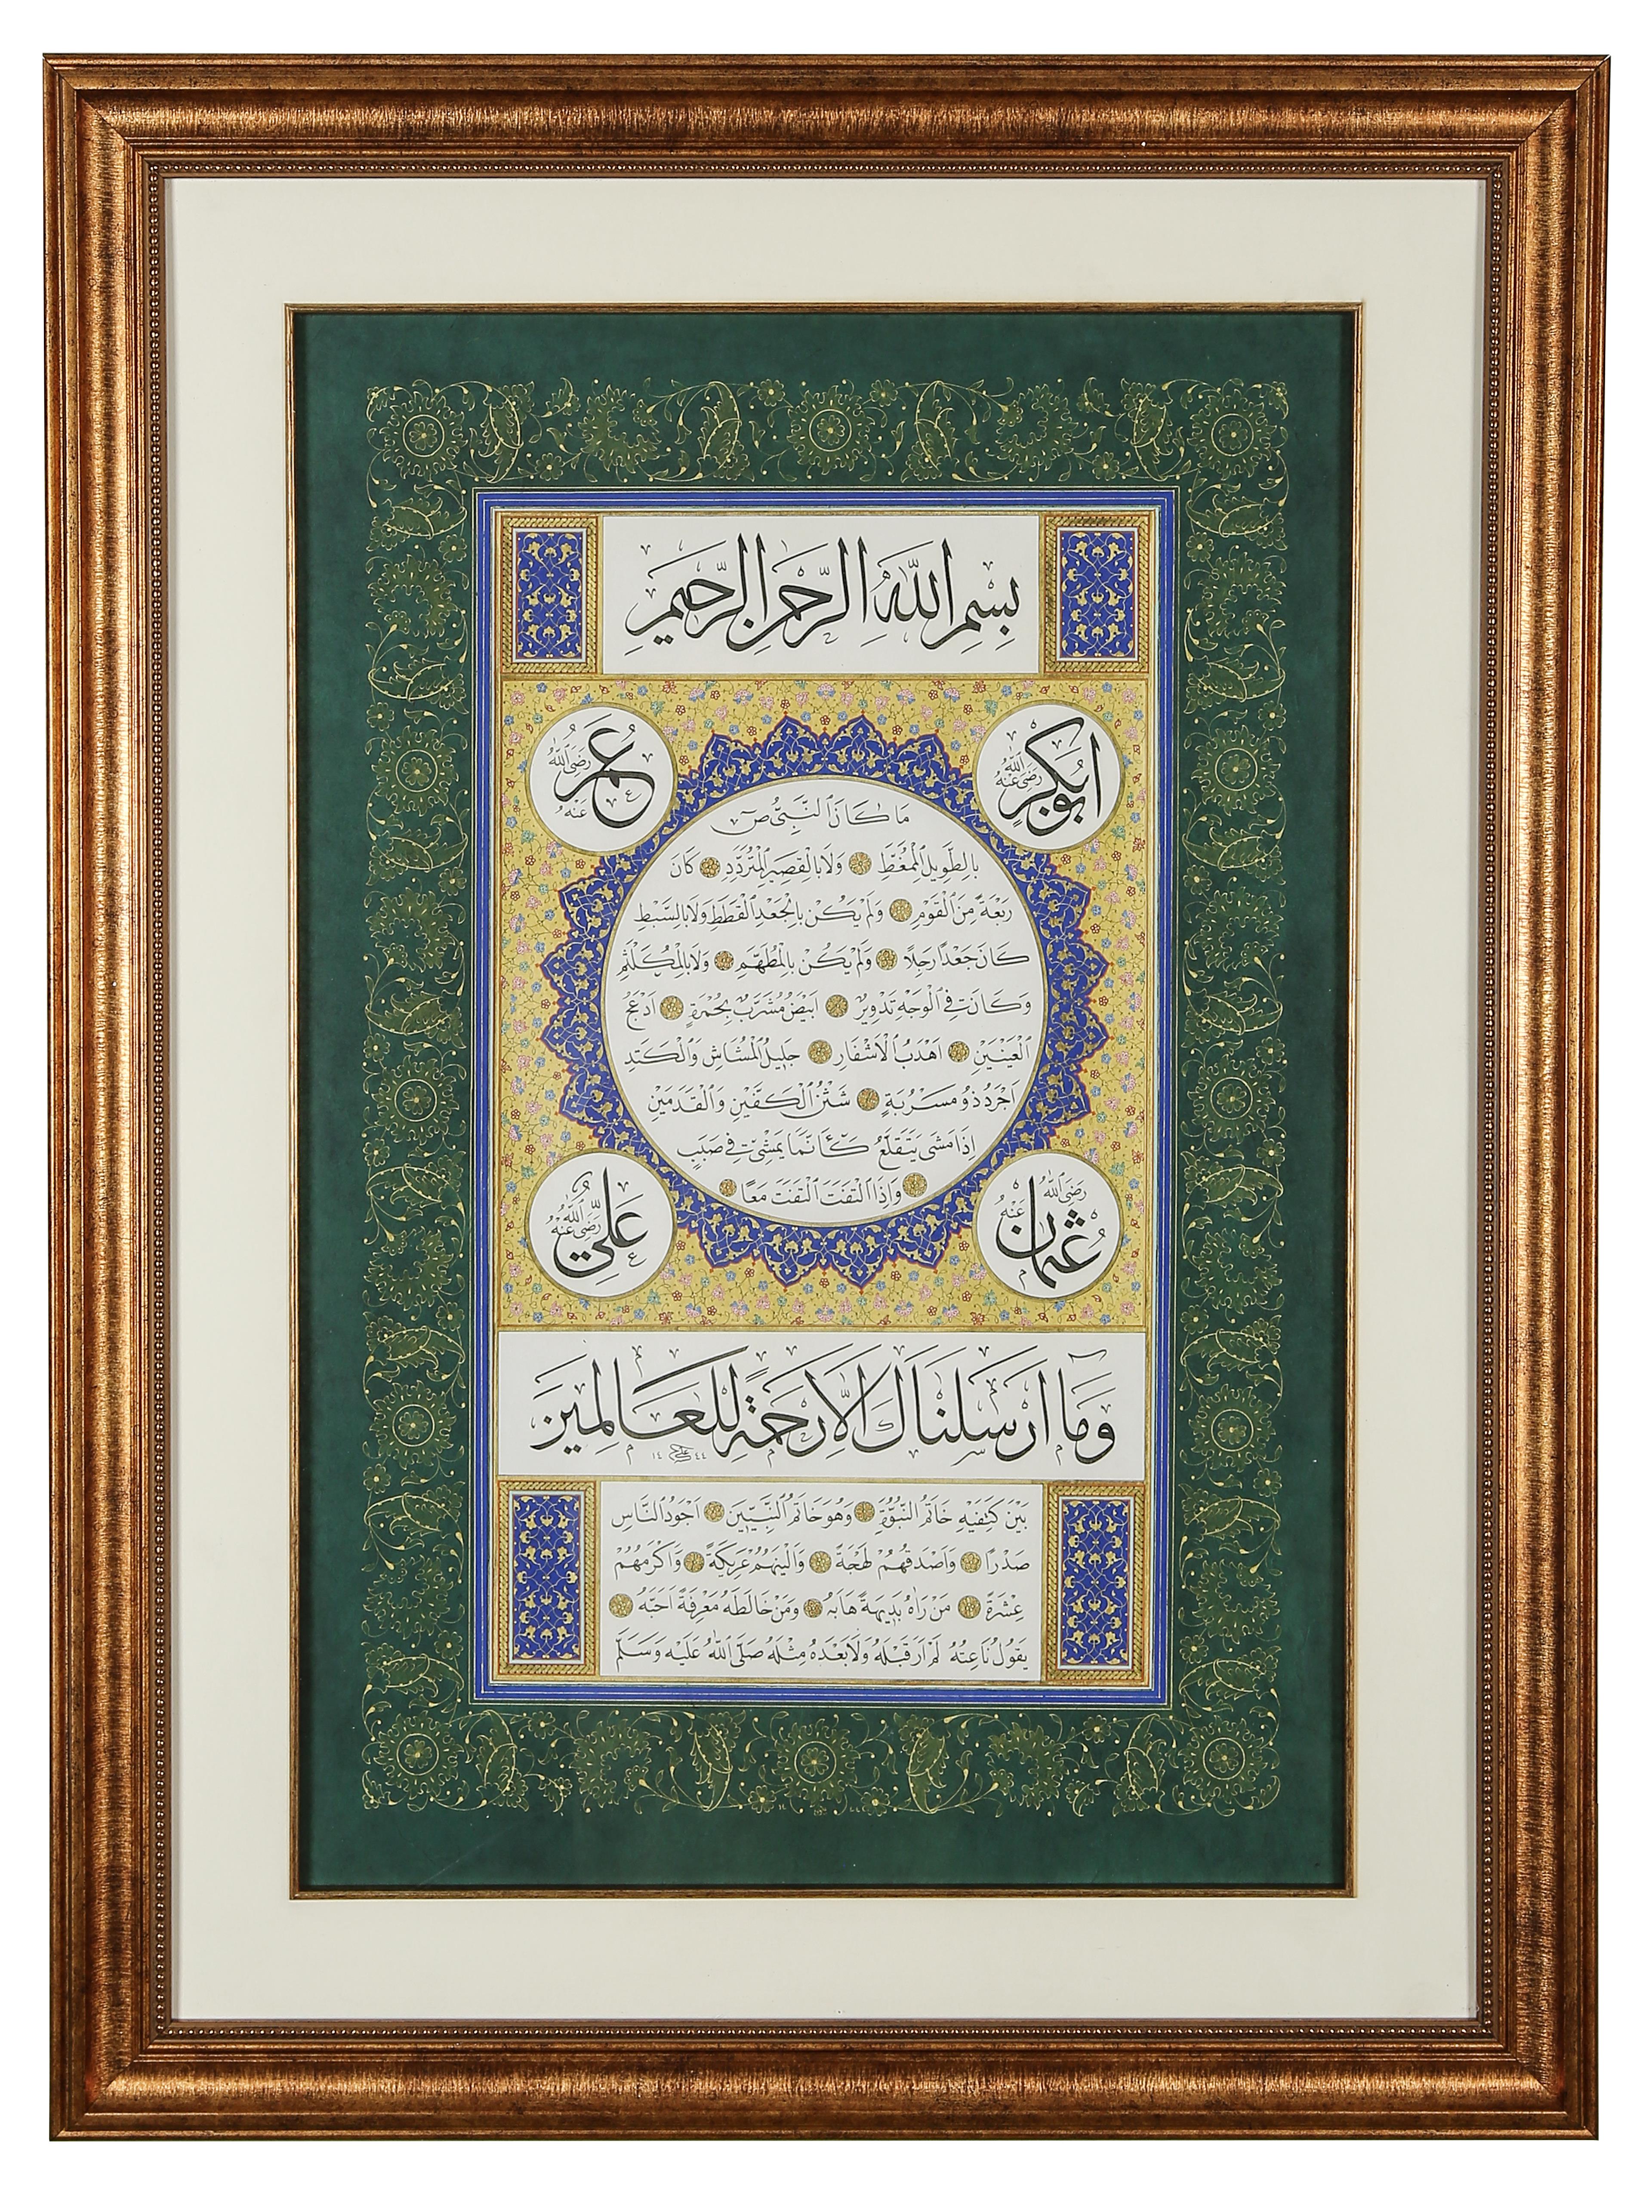 بِسْمِ اللّٰهِ الرَّحْمٰنِ الرَّحِيمِ
اَبُو بَكْرٍ رَضِيَ اللّٰهُ عَنْهُ
عُمَرُ رَضِيَ اللّٰهُ عَنْهُ
مَا كَانَ النَّبِيُّ ص
بِالطَّوِيلِ الْمُمَّغِطِ وَلَا بِالْقَصِيرِ الْمُتَرَدِّدِ كَانَ
رَبْعَةً مِنَ الْقَوْمِ وَلَمْ يَكُنْ بِالْجَعْدِ الْقَطَطِ وَلَا بِالسَّبْطِ
كَانَ جَعْدًا رَجِلًا وَلَمْ يَكُنْ بِالْمُطَهَّمِ وَلَا بِالْمُكَلْثَمِ
وَكَانَ فِي الْوَجْهِ تَدْوِيرٌ اَبْيَضُ مُشْرَبٌ بِحُمْرَةٍ اَدْعَجُ
الْعَيْنَيْنِ اَهْدَبُ الْاَشْفَارِ جَلِيلُ الْمُشَاشِ وَالْكَتَدِ
اَجْرَدُ ذُو مَسْرُبَةٍ شَثْنُ الْكَفَّيْنِ وَالْقَدَمَيْنِ
اِذَا مَشَى يَتَقَلَّعُ كَاَنَّمَا يَمْشِي فِي صَبَبٍ
وَاِذَا الْتَفَتَ الْتَفَتَ مَعًا
عُثْمَانُ رَضِيَ اللّٰهُ عَنْهُ
عَلِيٌّ رَضِيَ اللّٰهُ عَنْهُ
وَمَا اَرْسَلْنَاكَ اِلَّا رَحْمَةً لِلْعَالَمِينَ
بَيْنَ كَتِفَيْهِ خَاتَمُ النُّبُوَّةِ وَهُوَ خَاتَمُ النَّبِيِّينَ اَجْوَدُ النَّاسِ
صَدْرًا وَاَصْدَقُهُمْ لَهْجَةً وَاَلْيَنُهُمْ عَرِيكَةً وَاَكْرَمُهُمْ
عِشْرَةً مَنْ رَاٰهُ بَدِيهَةً هَابَهُ وَمَنْ خَالَطَهُ مَعْرِفَةً اَحَبَّهُ
يَقُولُ نَاعِتُهُ لَمْ اَرَ قَبْلَهُ وَلَا بَعْدَهُ مِثْلَهُ صَلَّى اللّٰهُ عَلَيْهِ وَسَلَّمَ